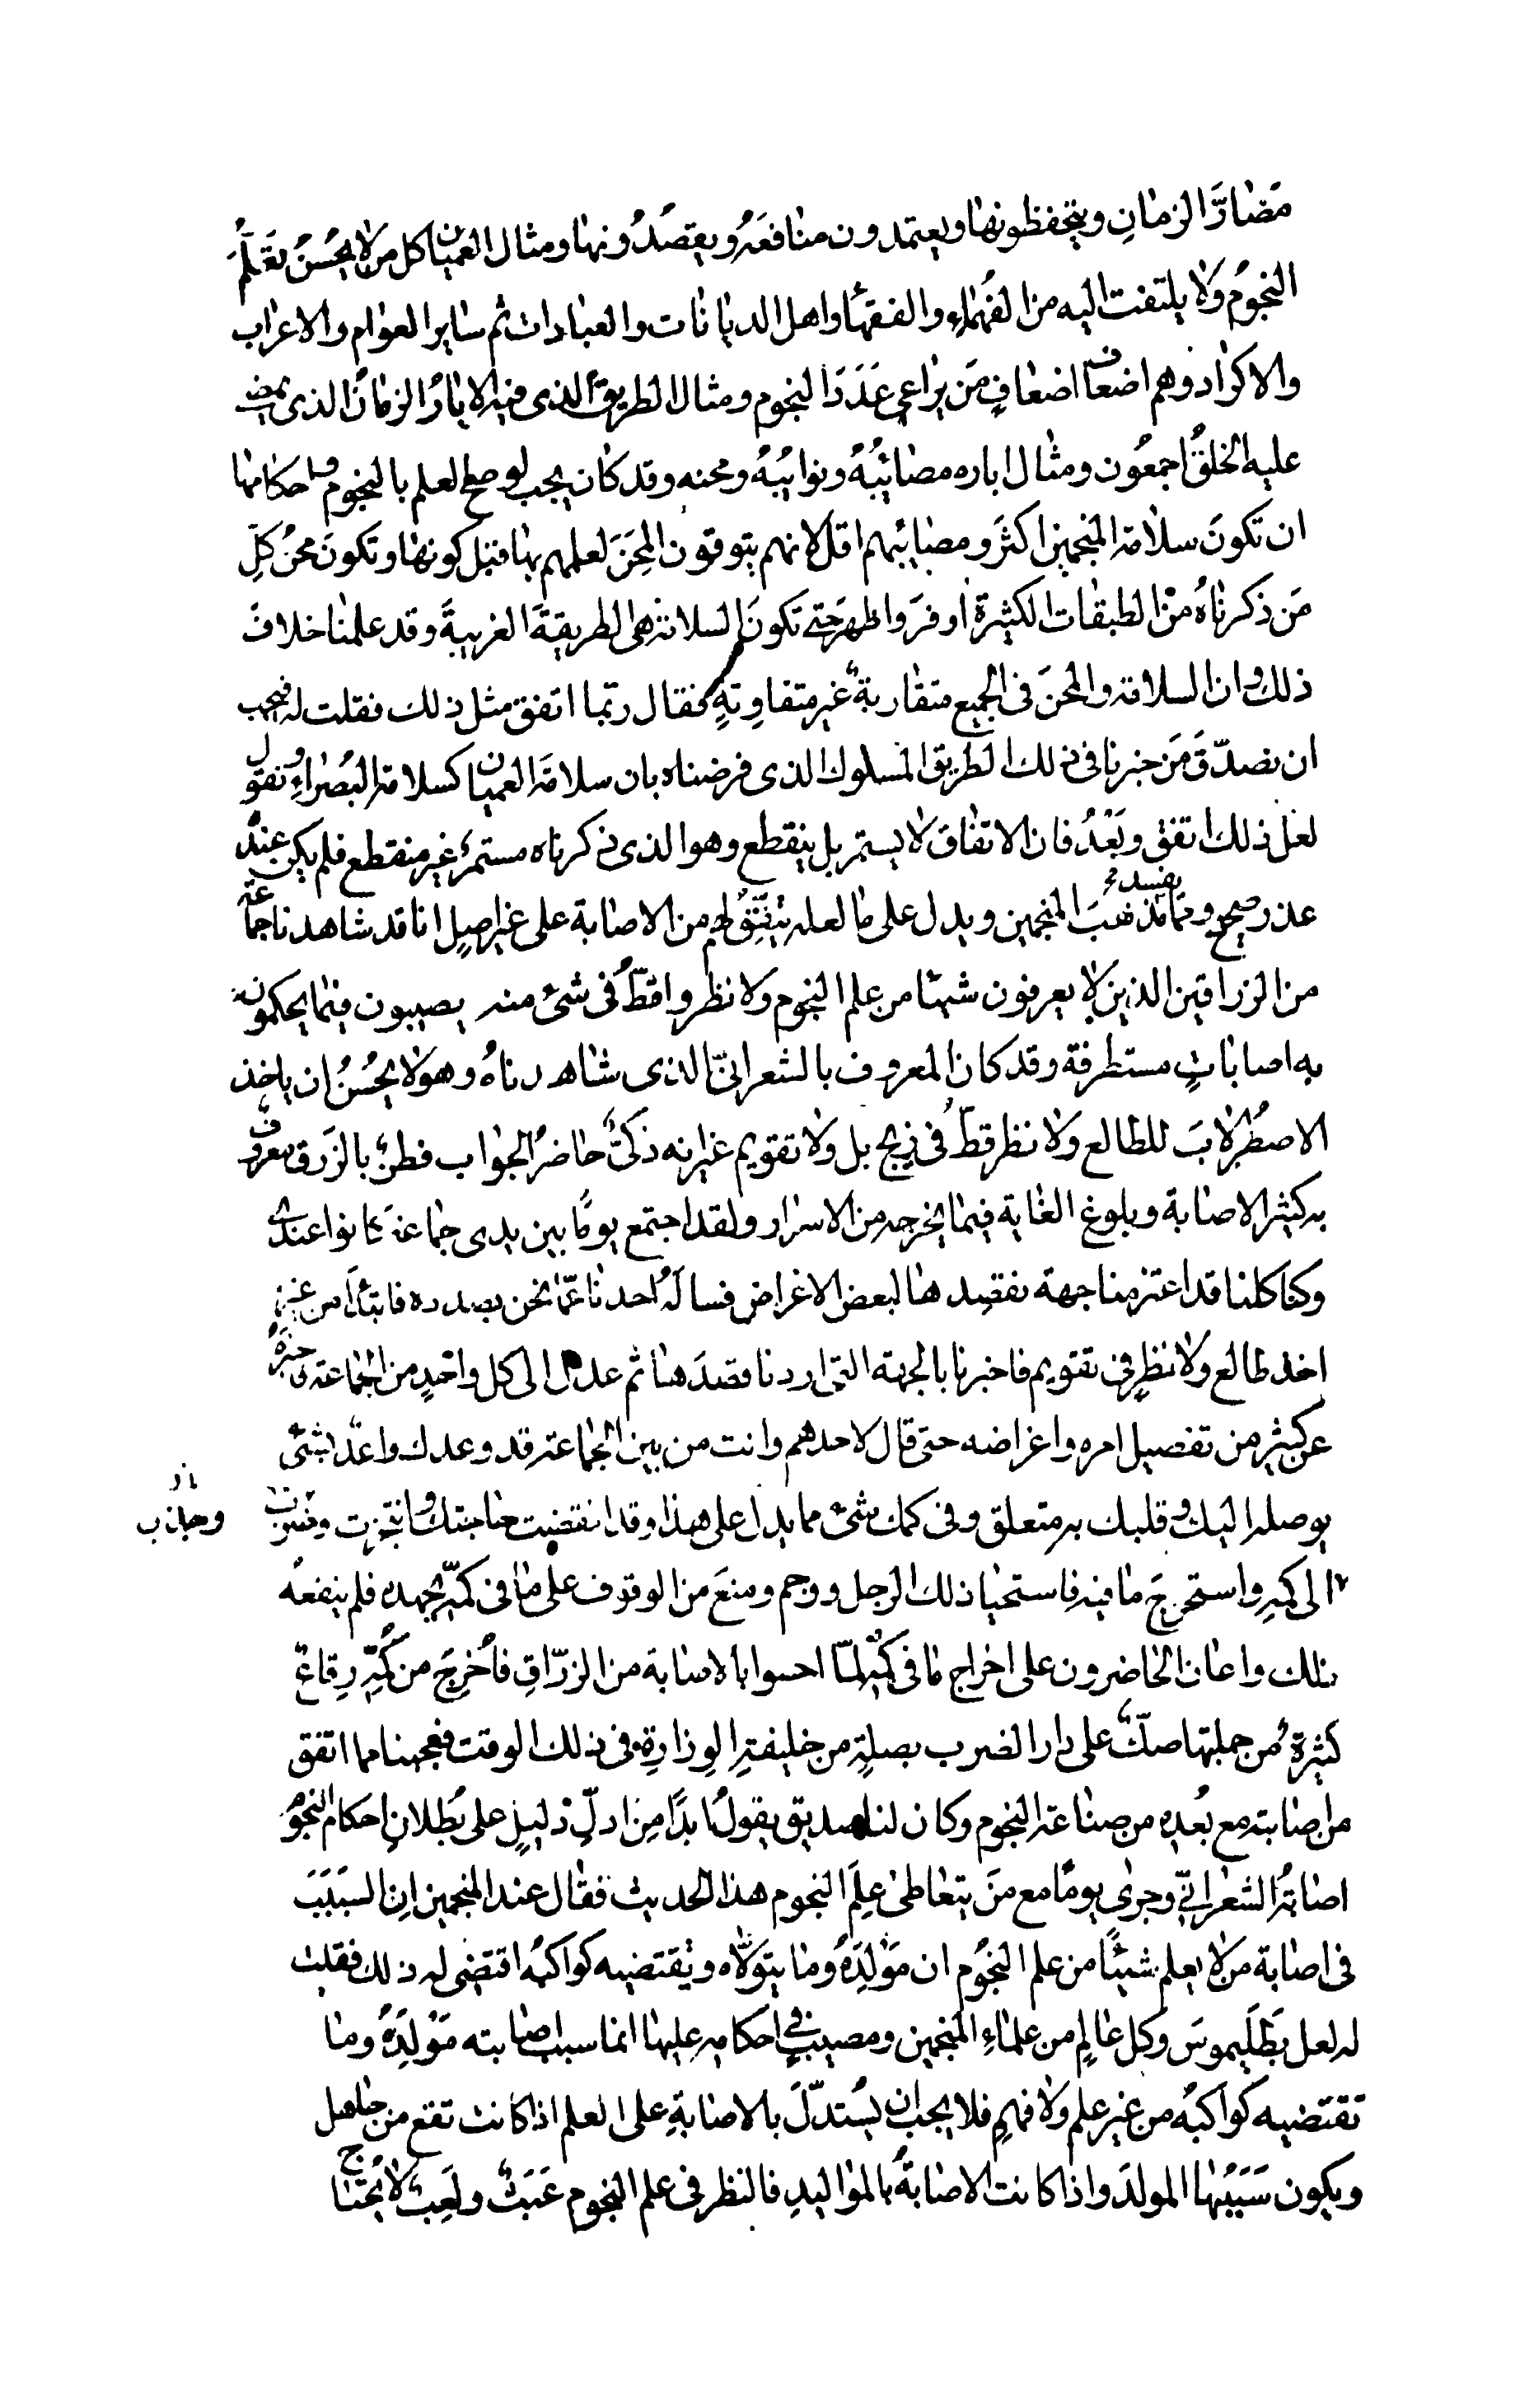 مَضارَّ الزمانِ ويتحفظون منها ويعتمدون منافعَهُ ويقصُدُونها ومثال العميان كل من لا يُحْسِنُ تَعَلُّمَ
النجومُ ولا يلتفت اليه من الفُهماءِ والفقهاء واهل الديانات والعبادات ثم ساير العوام والاعراب
والاكراد وهم اضعاف اضعافِ مَن يراعي عَدَدَ النجوم ومثال الطريق الذي فيه الابارُ الزمانُ الذي يمضي
عليه الخلقُ اجمعُون ومثال اباره مصائبُهُ ونوايبُهُ ومحنه وقد كان يجب لو صح العلم بالنجوم واحكامها
ان تكونَ سلامة المنجمين اكثَرَ ومصايبهم اقل لانهم يتوقون المِحَنَ لعلمهم بها قبل كونها وتكونَ محنُ كلِّ
مَن ذكرناهُ مِنْ الطبقات الكثيرة اوفَرَ واظهرَ حتى تكونَ السلامة هي الطريقةَ الغريبةَ وقد علمنا خلافَ
ذلك وان السلامة والمحنَ في الجميع متقاربةٌ غير متفاوِتةٍ فقال ربّما اتفق مثل ذلك فقلت له فيجب
ان نصدّقَ مَن خبرنا في ذلك الطريق المسلوك الذي فرضناه بان سلامَة العميان كسلامة البُصَراءِ ونقول
لعل ذلك اتفق وبَعْدُ فان الاتفاق لا يستمر بل ينقطع وهو الذي ذكرناه مستمرٌ غير منقطع فلم يكن عندهُ
عذر صحيح ومما يفسد مذهبَ المنجمين ويدل على ما لعله يتّفِقُ لهم من الاصابة على غير اصلٍ انا قد شاهدنا جماعة
من الزراقين الذين لا يعرفون شيئا من علم النجوم ولا نظروا قطّ في شئ منه يصيبون فيما يحكمون
به اصاباتٍ مستطرفة وقد كان المعروف بالشعرانيّ الذي شاهدناهُ وهو لا يُحْسِنُ ان ياخذ
الاصطُرلابَ للطالع ولا نظر قطّ في زيج بل ولا تقويم غير انه ذكيٌّ حاضرُ الجواب فطنٌ بالزَرق معروف
به كثير الاصابة وبلوغ الغاية فيما يخرجه من الاسرار ولقد اجتمع يومًا بين يدي جماعة كانوا عندي
وكنا كلنا قد اعتزمنا جهة نقصدها لبعض الاغراض فسالَهُ احدنا عمّا نحن بصدده فابتدأ من غير
اخذ طالع ولا نظرٍ في تقويم فاخبرنا بالجهة التي اردنا قصدَها ثم عدل الى كل واحدٍ من الجماعة فاخبرَهُ
عن كثيرٍ من تفصيل امره واغراضه حتى قال لاحدهم وانت من بين الجماعة قد وعدك واعدٌ بشئ
يوصله اليك وقلبك به متعلق وفي كمك شئ مما يدل على هذا وقد انقضيت حاجتك وانتجزت
الى كمهِ واستخرجَ ما فيه فاستحيا ذلك الرجل ووجم ومنعَ من الوقوف على ما في كمّه بجهده فلم ينفعه
ذلك واعان الحاضرون على اخراج ما في كمّه لمّا احسوا بالاصابة من الزرّاقِ فاُخرِجَ من كُمّهِ رِقاعٌ
كثيرةٌ من جملتها صكٌّ على دار الضرب بصلةٍ من خليفةِ الوِزارةِ في ذلك الوقت فعجبنا مما اتفق
من اصابته مع بُعدِه من صناعة النجوم وكان لنا صديق يقولُ ابدًا مِن ادلِّ دليلٍ على بُطلانِ احكام النجوم
اصابةُ الشعرانيّ وجرى يومًا مع مَن يتعاطى عِلمَ النجوم هذا الحديث فقال عند المنجمين اِن السبَبَ
في اصابة من لا يعلم شيئًا من علم النجُوم ان مَوْلِدَهُ وما يتولّاه ويقتضيه كواكبهُ اقتضى له ذلك فقلت
له لعل بَطْلَيموسَ وكل عالمٍ من علماءِ المنجمين ومصيبٍ في احكامه عليها انما سبب اصابته مَوْلِدَهُ وما
تقتضيه كواكبُه من غير علم ولا فهمٍ فلا يجب ان يُستدّلَ بالاصابةِ على العلم اذا كانت تقع من جاهل
ويكون سَبَبُها المولدَ واذا كانت الاصابةُ بالمواليدِ فالنظر في علم النجوم عَبَثٌ ولَعِبٌ لا يُحتاج